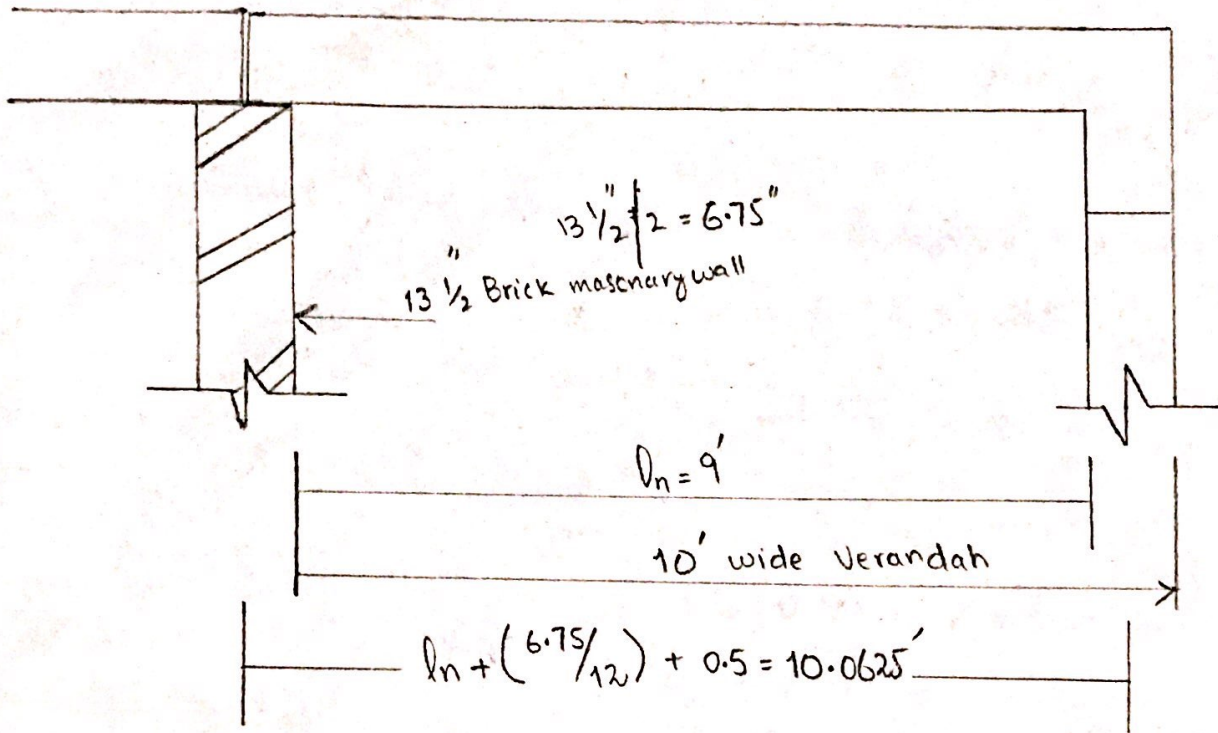 13 1/2" / 2 = 6.75"
13 1/2" Brick masonary wall
ln = 9'
10' wide Verandah
ln + (6.75/12) + 0.5 = 10.0625'